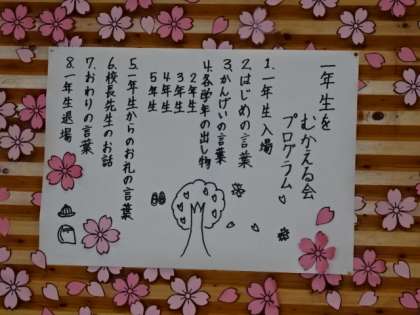 一年生を
むかえる会
プログラム
1.一年生入場
2.はじめの言葉
3.かんげいの言葉
4.各学年の出し物
2年生
3年生
4年生
5年生
5.一年生からのお礼の言葉
6.校長先生のお話
7.おわりの言葉
8.一年生退場